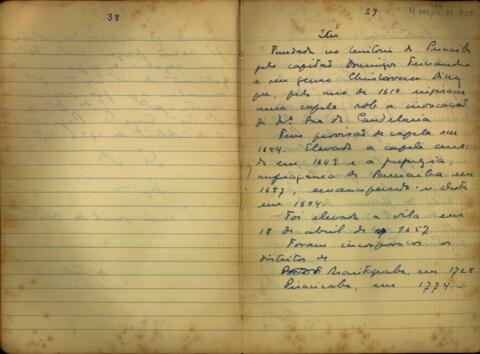 38
39
Itú
Fundada no território de Parnaíba
pelo capitão Domingos Fernandes
e seu genro Christovam Diniz
que, pelo ano de 1610 erigiram
uma capela sob a invocação
de Nª Sra de Candelaria
Teve provisão de capela em
1644. Elevada a capela
da em 1653 e a freguezia,
sufragânea de Parnaiba em
1657, emancipando-se desta
em 1694.
Foi elevada a vila em
18 de abril de 1657
Foram incorporados os
distritos de
Araritaguaba, em 1728
Piracicaba, em 1774.-